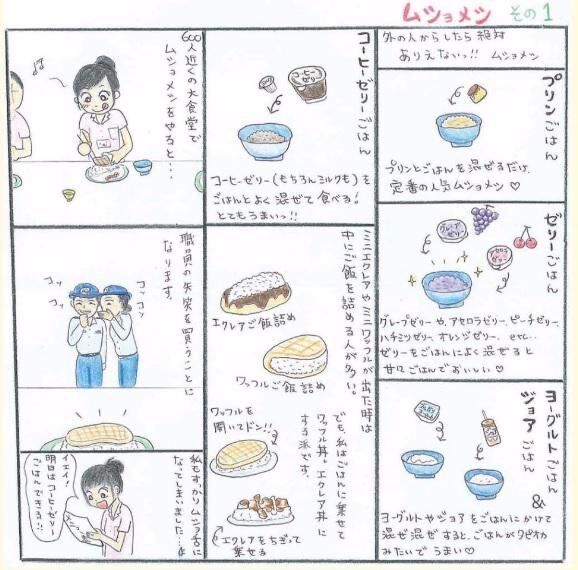 ムショメシ その1
外の人からしたら絶対
ありえないっ!! ムショメシ
プリンごはん
プリンとごはんを混ぜるだけ。
定番の人気ムショメシ♡
ゼリーごはん
グレープゼリー
アセロラゼリー
グレープゼリーや、アセロラゼリー、ピーチゼリー、
ハチミツゼリー、オレンジゼリー、etc…
ゼリーをごはんによく混ぜると
甘々ごはんでおいしい♡
ヨーグルトごはん&
ジョアごはん
ヨーグルトやジョアをごはんにかけて
混ぜ混ぜすると、ごはんがタピオカ
みたいでうまい♡
コーヒーゼリーごはん
コーヒーゼリー
コーヒーゼリー(もちろんミルクも)を
ごはんとよく混ぜて食べる。
とてもうまいっ!!
ミニエクレアやミニワッフルが出た時は
中にご飯を詰める人が多い。
エクレアご飯詰め
ワッフルご飯詰め
でも、私はごはんに乗せて
ワッフル丼、エクレア丼に
する派です。
ワッフルを
開いてドン!!
エクレアをちぎって
乗せる
600人近くの大食堂で
ムショメシをやると…
職員の失笑を買うことに
なります。
コソッ
コソッ
私もすっかりムショ舌に
なってしまいました…
イエイ!
明日はコーヒーゼリー
ごはんできる!!